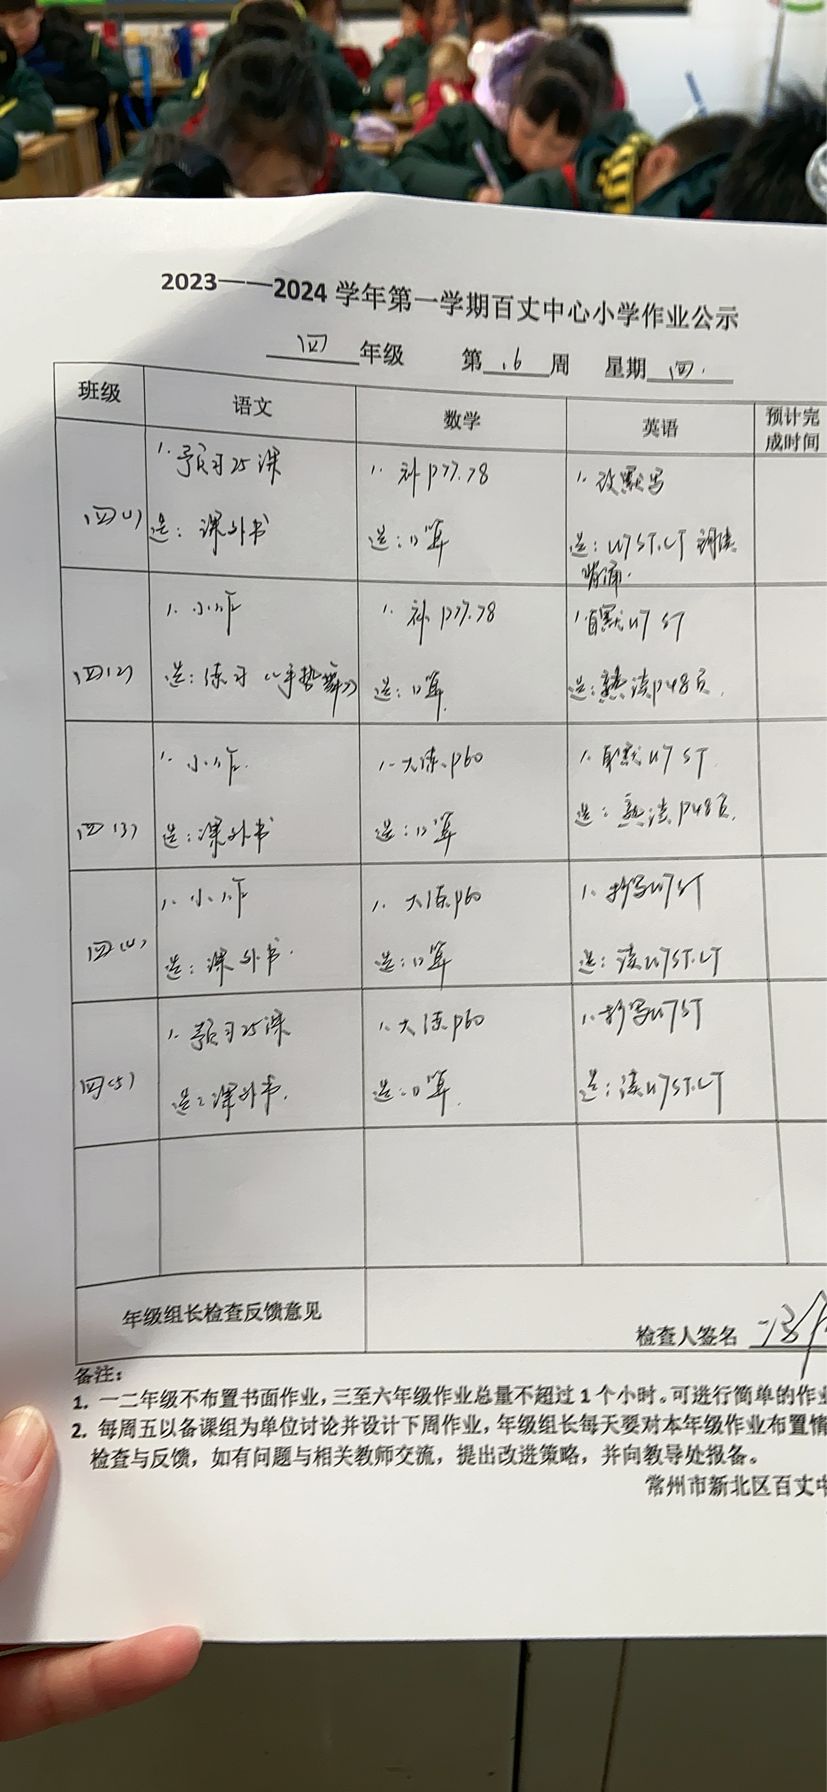 2023——2024 学年第一学期百丈中心小学作业公示
四 年级 第 16 周 星期 四.
班级 语文 数学 英语 预计完成时间
四(1)
1. 预习25课
选: 课外书
1. 补P77.78
选: 口算
1. 改默写
选: U7 ST.CT 朗读
背诵.
四(2)
1. 小作
选: 练习《手势舞》
1. 补P77.78
选: 口算.
1. 自默U7 ST
选: 熟读P48页.
四(3)
1. 小作.
选: 课外书
1. 大练P60
选: 口算
1. 自默U7 ST
选: 熟读P48页.
四(4)
1. 小作
选: 课外书.
1. 大练P60
选: 口算
1. 抄写U7ST
选: 读U7ST.CT
四(5)
1. 预习25课
选: 课外书.
1. 大练P60
选: 口算.
1. 抄写U7ST
选: 读U7ST.CT
年级组长检查反馈意见
检查人签名
备注:
1. 一二年级不布置书面作业，三至六年级作业总量不超过 1 个小时。可进行简单的作业
2. 每周五以备课组为单位讨论并设计下周作业，年级组长每天要对本年级作业布置情
检查与反馈，如有问题与相关教师交流，提出改进策略，并向教导处报备。
常州市新北区百丈中